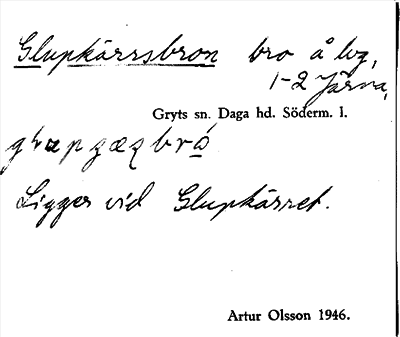 Glupkärrsbron bro å lvg,
1-2 Järva,
Gryts sn. Daga hd. Söderm. l.
Ligger vid Glupkärret.
Artur Olsson 1946.